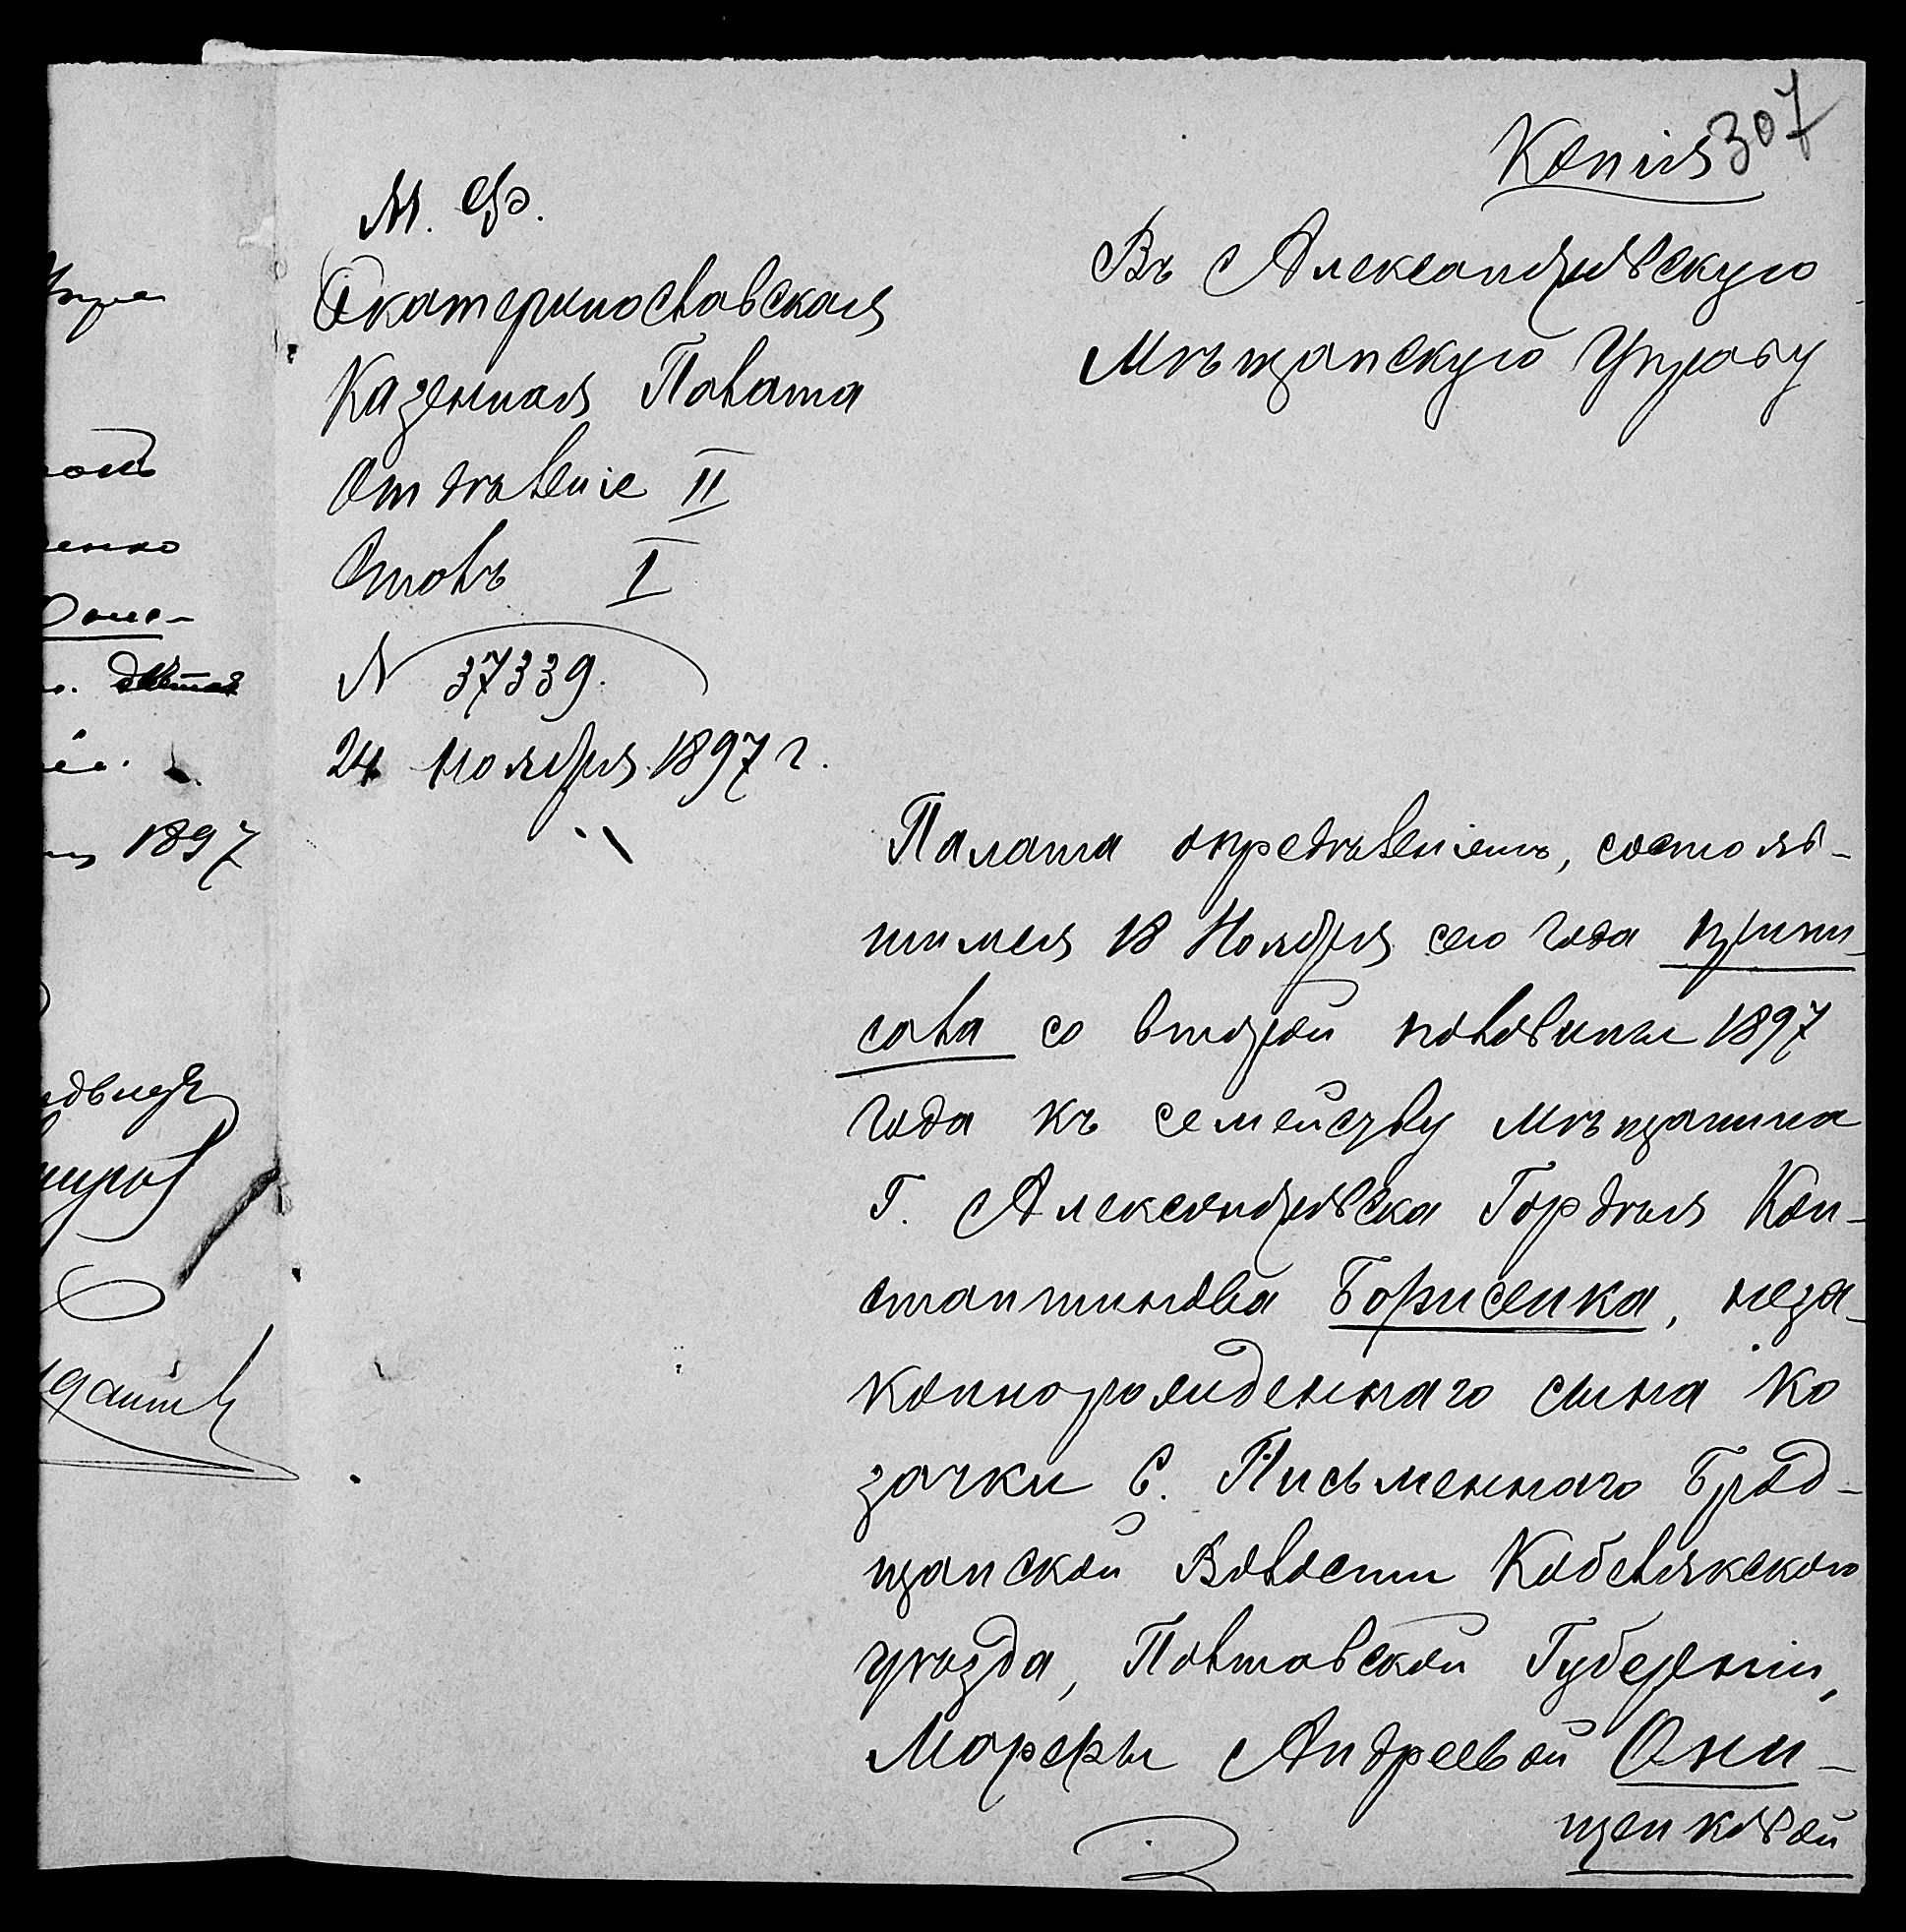 307
Копія
М. Ф.
Екатеринославская
Казенная Палата
Отдѣленіе II
Столъ I
N 37339.
24 ноября 1897 г.
Въ Александровскую
Мѣщанскую Управу
Палата опредѣленіемъ, состояв-
шимся 18 Ноября сего года припи-
сала со второй половины 1897
года къ семейству мѣщанина
г. Александровска Гордѣя Кон-
стантинова Борисенка, неза-
коннорожденнаго сына ко
зачки С. Письменнаго Брод-
щанской Волости Кобелякского
уѣзда, Полтавской Губерніи,
Марфы Андреевой Они-
щенковой
1897